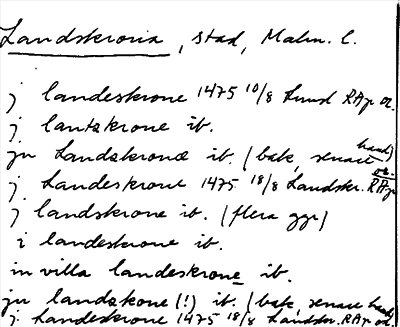 Landskrona, stad, Malm. l.
j landeskrone 1475 10/8 Lund RAp or.
j lantzkrone ib.
jn Landzkronæ ib. (bak, senare hand)
j Landeskrone 1475 18/8 Landskr. RAp or.
j landzkrone ib. (flera ggr)
i landeskrone ib.
in villa landeskrone ib.
jn landzkone (!) ib. (bak, senare hand)
j. Landeskrone 1475 18/8 Landskr. RAp or.